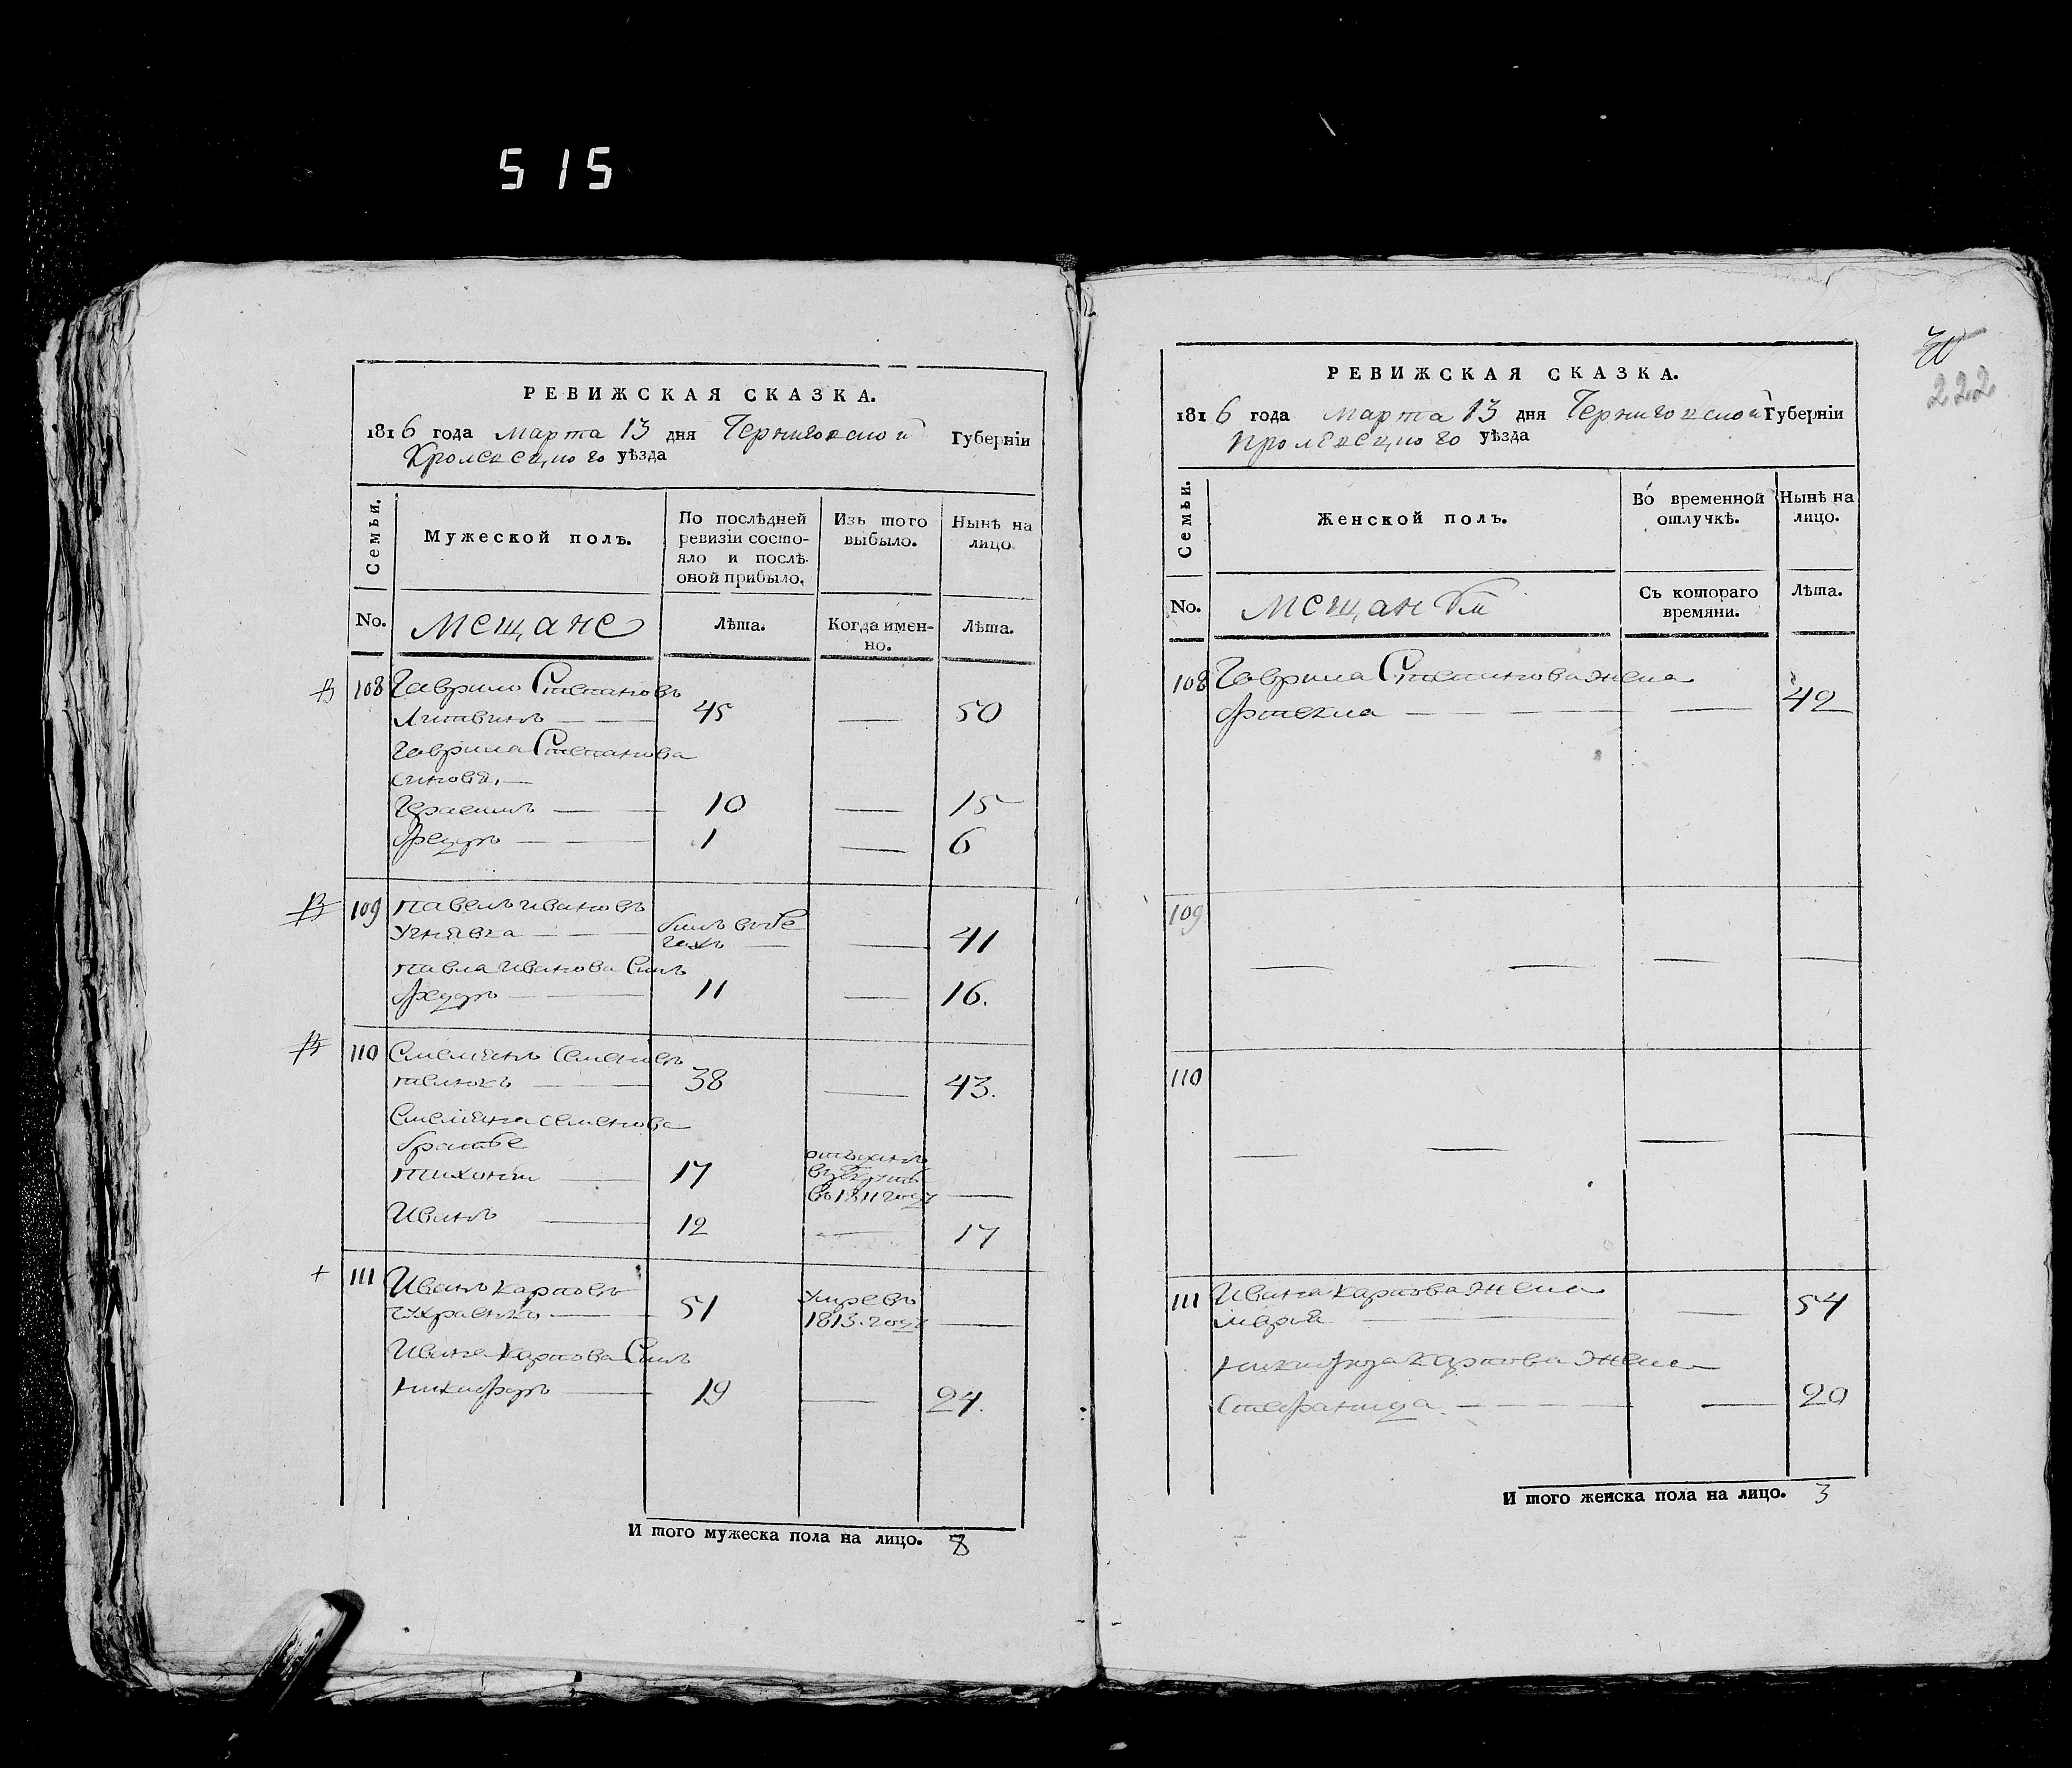 515
РЕВИЖСКАЯ СКАЗКА.
1816 года марта 13 дня Черниговской Губерніи
Кролевецкого уѣзда
Семьи.
Мужеской полъ.
По послѣдней ревизіи состо-
яло и послѣ
оной прибыло.
Изъ того
выбыло.
Нынѣ на
лицо
No.
Мещане
Лѣта.
Когда имен-
но.
Лѣта.
108 Гаврило Степановъ
Литвинъ 45 — 50
Гаврила Степанова
синови,
Герасимъ 10 — 15
Федоръ 1 — 6
109 Павелъ Ивановъ
билъ въ бе
гахъ — 41
Павла Иванова Синъ
Федоръ 11 — 16.
110 Емелянъ Семеновъ
38 — 43.
Емеляна Семенова
братье
Тихонъ 17
въ 1811 году —
Иванъ 12 — 17
111 Иванъ Карповъ
51 Умре въ
1813. году —
Ивана Карпова Синъ
Никифоръ 19 — 24.
И того мужеска пола на лицо. 8
222
РЕВИЖСКАЯ СКАЗКА.
1816 года марта 13 дня Черниговской Губерніи
Кролевецкого уѣзда
Семьи.
Женской полъ.
Во временной
отлучкѣ.
Нынѣ на
лицо.
No.
Съ котораго
времяни.
Лѣта.
108 Гаврила Степанова жена
Фтекла — 42
109
110
111 Ивана Карпова жена
Мария — 54
Никифора Карпова жена
Стефанида — 20
И того женска пола на лицо. 3